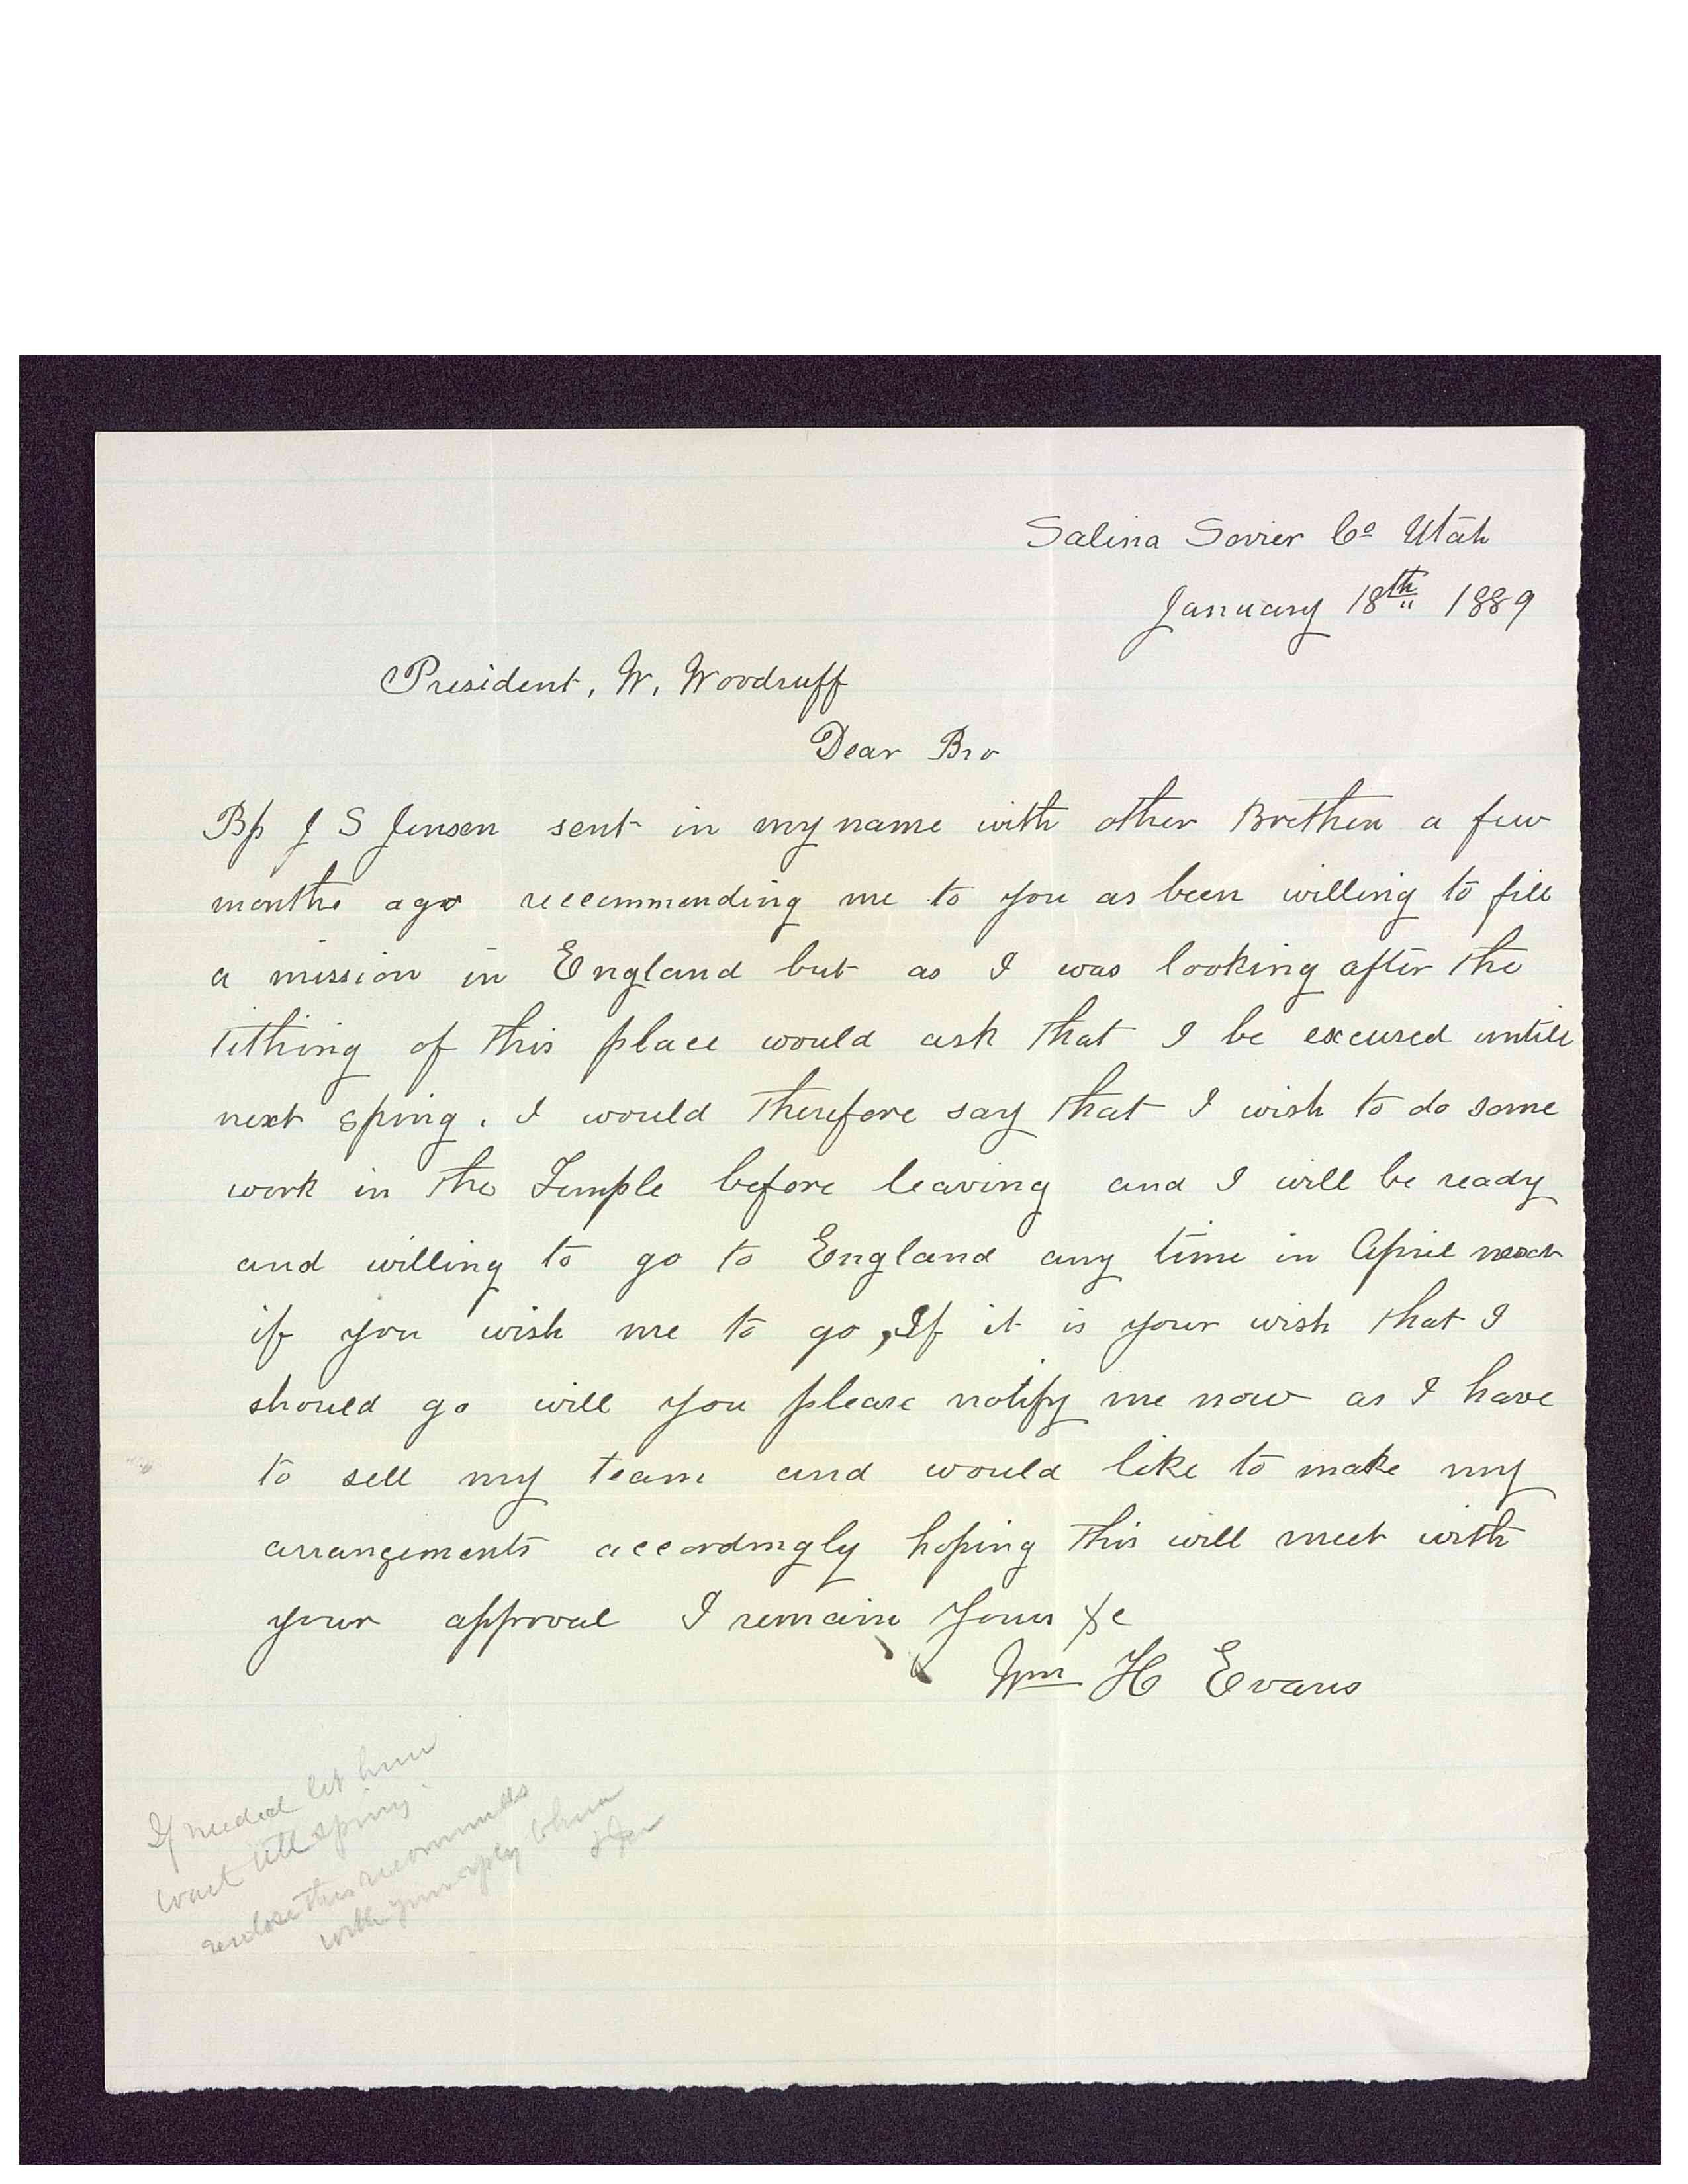 Salina Sevier Co Utah
January 18th 1889
President, W, Woodruff
Dear Bro
Bp J S Jensen sent in my name with other Brethen a few
months ago reccommending me to you as been willing to fill
a mission in England but as I was looking after the
tithing of this place would ask that I be excused untill
next sping. I would therefore say that I wish to do some
work in the Temple before leaving and I will be ready
and willing to go to England any time in April next
if you wish me to go, If it is your wish that I
should go will you please notify me now as I have
to sell my team and would like to make my
arrangements accordingly hoping this will meet with
your approval I remain Yours &c
Wm H Evans
If needed let him
wait till spring.
enclose this recommends
with your reply to him